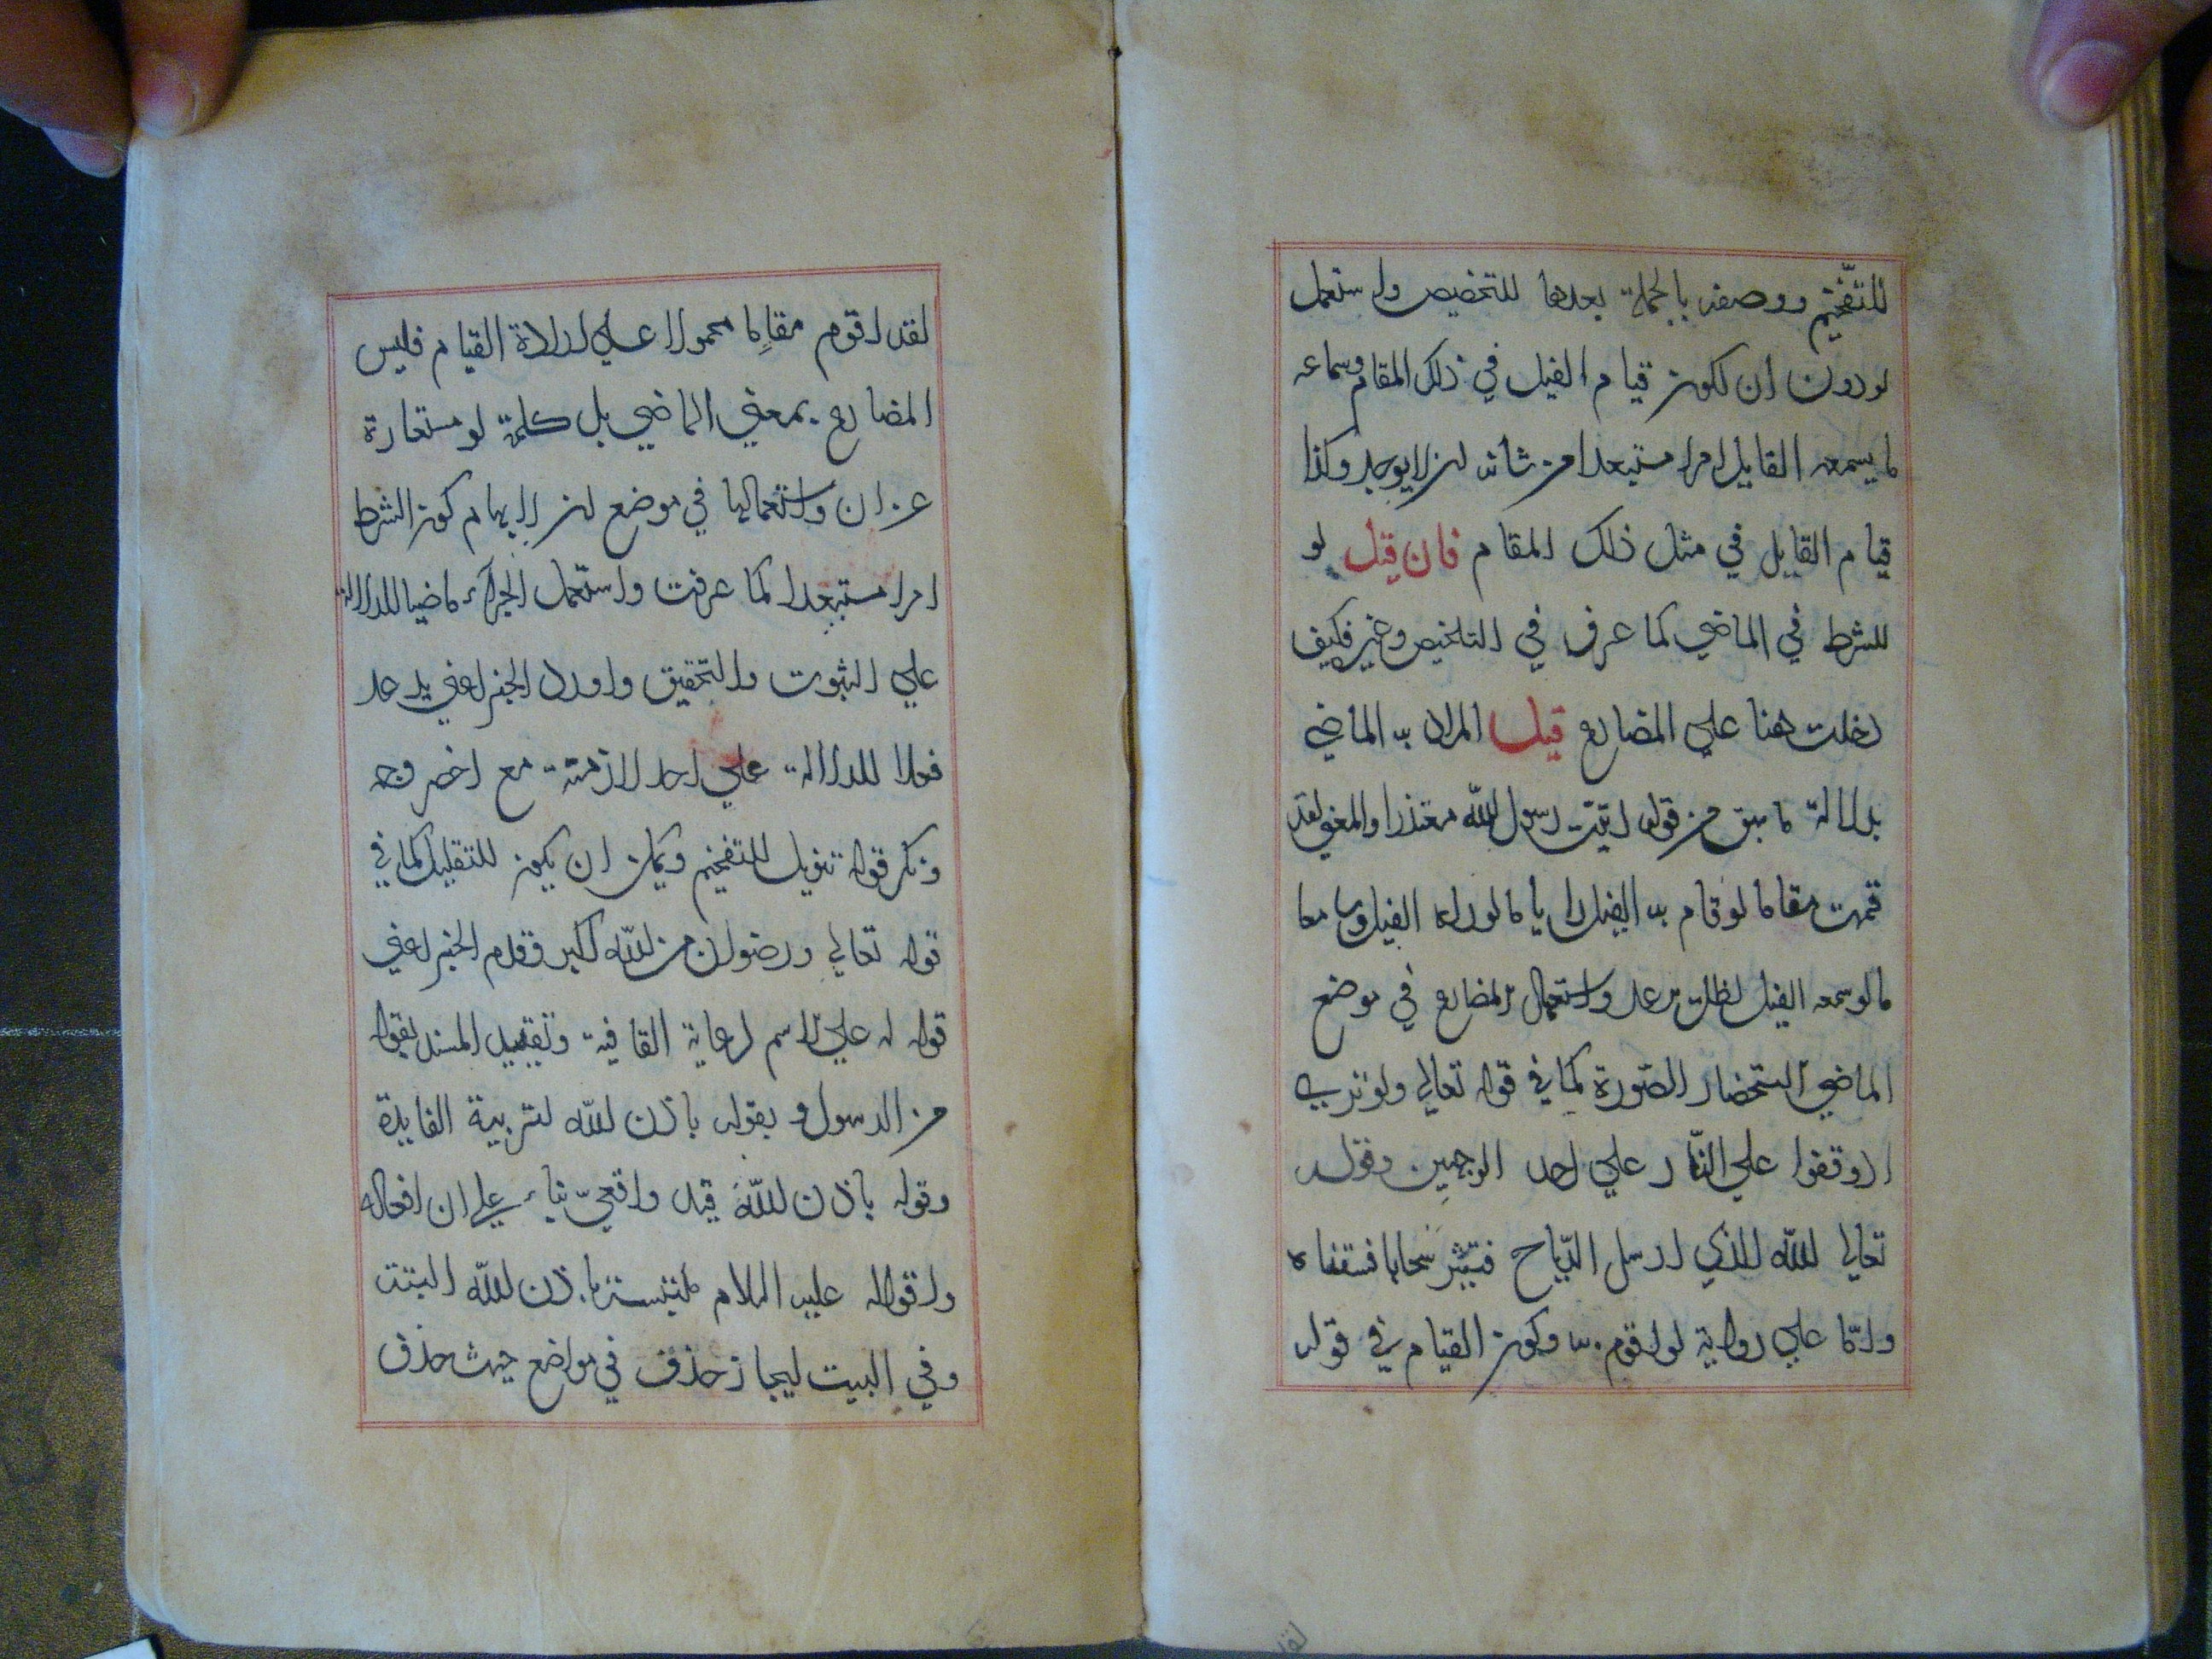 للتّفخيم ووصفه بالجملة بعدها للتخصيص واستعمل
لو دون ان لكون قيام الفيل في ذلك المقام وسماعه
ما يسمعه القايل امرا مستبعدا من شانه ان لا يوجد وكذا
قيام القايل في مثل ذلك المقام فان قيل لو
للشرط في الماضي كما عرف في التلخيص وغيره فكيف
دخلت هنا علي المضارع قيل المراد به الماضي
بدلالة ما سبق من قوله اتيت رسول الله معتذرا والمعني لقد
قمت مقاما لو قام به الفيل رايا ما لو راه الفيل وسامعا
ما لو سمعه الفيل لظل يرعد واستعمال المضارع في موضع
الماضي لاستحضار الصّورة كما في قوله تعالي ولو تري
اذ وقفوا علي النّار علي احد الوجهين وقوله
تعالي الله الذي ارسل الرّياح فتثير سحابا فسقناه
وامّا علي رواية لو اقوم به وكون القيام في قوله
لقد اقوم مقاما محمولا علي ارادة القيام فليس
المضارع بمعني الماضي بل كلمة لو مستعارة
عن ان واستعمالها في موضع ان لايهام كون الشرط
امرا مستبعدا كما عرفت واستعمل الجزاء ماضيا للدلالة
علي الثبوت والتحقيق واورد الخبر اعني يرعد
فعلا للدلالة علي احد الازمنة مع اخصر وجه
ونكر قوله تنويل للتفخيم ويمكن ان يكون للتقليل كما في
قوله تعالي ورضوان من الله اكبر وقدم الخبر اعني
قوله له علي الاسم لرعاية القافية وتقييد المسند بقوله
من الرسول وبقوله باذن الله لتربية الفايدة
وقوله باذن الله قيد واقعيّ بناء علي ان افعاله
واقواله عليه السلام باذن الله البتة
وفي البيت ايجاز حذف في مواضع حيث حذف